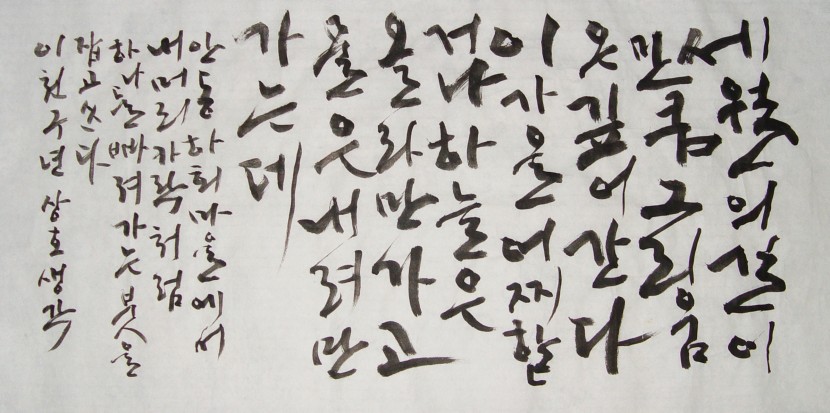 세월의 살이
만큼 그리움
은 깊어 간다
이 가을 어찌할
거나 하늘은
올라만 가고
물은 내려만
가는데
안동 하회마을에서
내 머리카락처럼
하나둘 빠져가는 붓을
잡고 쓰다
이천구년 상호생각